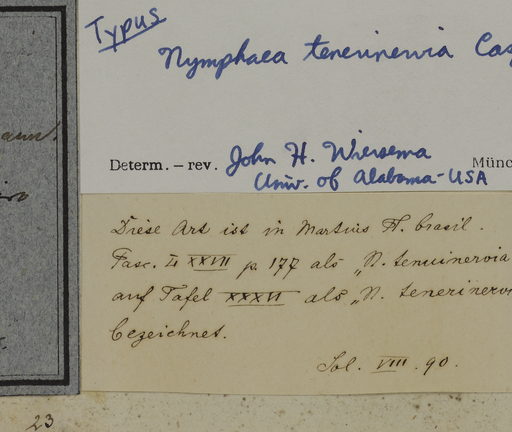 Typus
Nymphaea tenerinervia Cas
Determ. – rev. John H. Wiersema Münc
Univ. of Alabama-USA
Diese Art ist in Martius Fl. brasil.
Fasc. LXXVII p. 177 als „N. tenuinervia
auf Tafel XXXVI als „N. tenerinervi
bezeichnet.
Sol. VIII. 90.
23